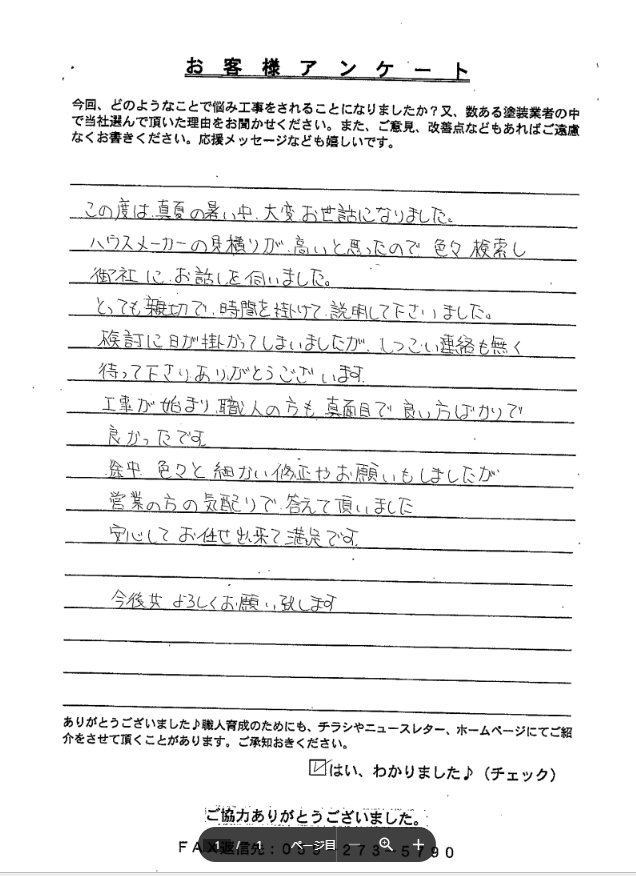 お客様アンケート
今回、どのようなことで悩み工事をされることになりましたか？又、数ある塗装業者の中
で当社選んで頂いた理由をお聞かせください。また、ご意見、改善点などもあればご遠慮
なくお書きください。応援メッセージなども嬉しいです。
この度は、真夏の暑い中、大変お世話になりました。
ハウスメーカーの見積りが、高いと思ったので 色々検索し
御社に、お話しを伺いました。
とっても親切で、時間を掛けて説明して下さいました。
検討に日が掛かってしまいましたが、しつこい連絡も無く
待って下さり、ありがとうございます。
工事が始まり、職人の方も、真面目で良い方ばかりで
良かったです。
途中、色々と細かい修正やお願いもしましたが
営業の方の気配りで、答えて頂いました
安心してお任せ出来て満足です。
今後共よろしくお願い致します
ありがとうございました♪職人育成のためにも、チラシやニュースレター、ホームページにてご紹
介をさせて頂くことがあります。ご承知おきください。
はい、わかりました♪（チェック）
ご協力ありがとうございました。
FAX返信先：
273-5790
1 / 1 ページ目